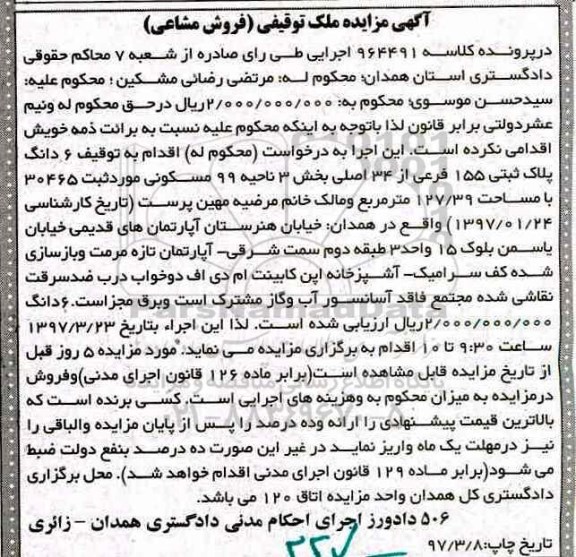 آگهی مزایده ملک توقیفی (فروش مشاعی)
درپرونده کلاسه ۹۶۴۴۹۱ اجرایی طی رای صادره از شعبه ۷ محاکم حقوقی
دادگستری استان همدان؛ محکوم له: مرتضی رضائی مشکین ؛ محکوم علیه:
سیدحسن موسوی؛ محکوم به: ۲/۰۰۰/۰۰۰/۰۰۰ریال درحق محکوم له ونیم
عشردولتی برابر قانون لذا باتوجه به اینکه محکوم علیه نسبت به برائت ذمه خویش
اقدامی نکرده است، این اجرا به درخواست (محکوم له) اقدام به توقیف ۶ دانگ
پلاک ثبتی ۱۵۵ فرعی از ۳۴ اصلی بخش ۳ ناحیه ۹۹ مسکونی موردثبت ۳۰۴۶۵
با مساحت ۱۲۷/۳۹ مترمربع ومالک خانم مرضیه مهین پرست (تاریخ کارشناسی
۱۳۹۷/۰۱/۲۴) واقع در همدان: خیابان هنرستان آپارتمان های قدیمی خیابان
یاسمن بلوک ۱۵ واحد۳ طبقه دوم سمت شرقی- آپارتمان تازه مرمت وبازسازی
شده کف سرامیک- آشپزخانه اپن کابینت ام دی اف دوخواب درب ضدسرقت
نقاشی شده مجتمع فاقد آسانسور آب وگاز مشترک است وبرق مجزاست. ۶دانگ
۲/۰۰۰/۰۰۰/۰۰۰ریال ارزیابی شده است. لذا این اجراء بتاریخ ۱۳۹۷/۳/۲۳
ساعت ۹:۳۰ تا ۱۰ اقدام به برگزاری مزایده می نماید. مورد مزایده ۵ روز قبل
از تاریخ مزایده قابل مشاهده است(برابر ماده ۱۲۶ قانون اجرای مدنی)وفروش
درمزایده به میزان محکوم به وهزینه های اجرایی است. کسی برنده است که
بالاترین قیمت پیشنهادی را ارائه وده درصد را پس از پایان مزایده والباقی را
نیز درمهلت یک ماه واریز نماید در غیر این صورت ده درصد بنفع دولت ضبط
می شود(برابر ماده ۱۲۹ قانون اجرای مدنی اقدام خواهد شد). محل برگزاری
دادگستری کل همدان واحد مزایده اتاق ۱۲۰ می باشد.
۵۰۶ دادورز اجرای احکام مدنی دادگستری همدان - زائری
تاریخ چاپ:۹۷/۳/۸